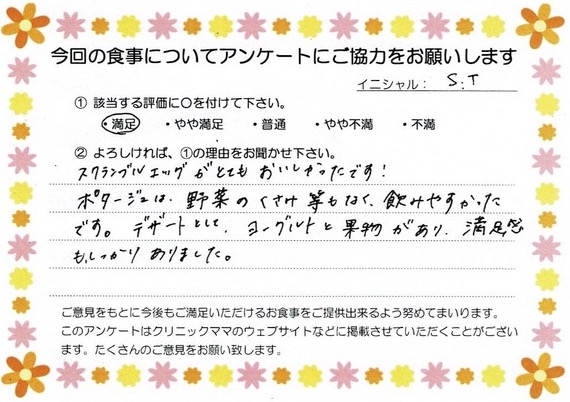 今回の食事についてアンケートにご協力をお願いします
イニシャル： S.T
① 該当する評価に○を付けて下さい。
・満足 ・やや満足 ・普通 ・やや不満 ・不満
② よろしければ、①の理由をお聞かせ下さい。
スクランブルエッグがとてもおいしかったです！
ポタージュは、野菜のくさみ等もなく、飲みやすかった
です。デザートとして、ヨーグルトと果物があり、満足感
も、しっかりありました。
ご意見をもとに今後もご満足いただけるお食事をご提供出来るよう努めてまいります。
このアンケートはクリニックママのウェブサイトなどに掲載させていただくことがござい
ます。たくさんのご意見をお願い致します。